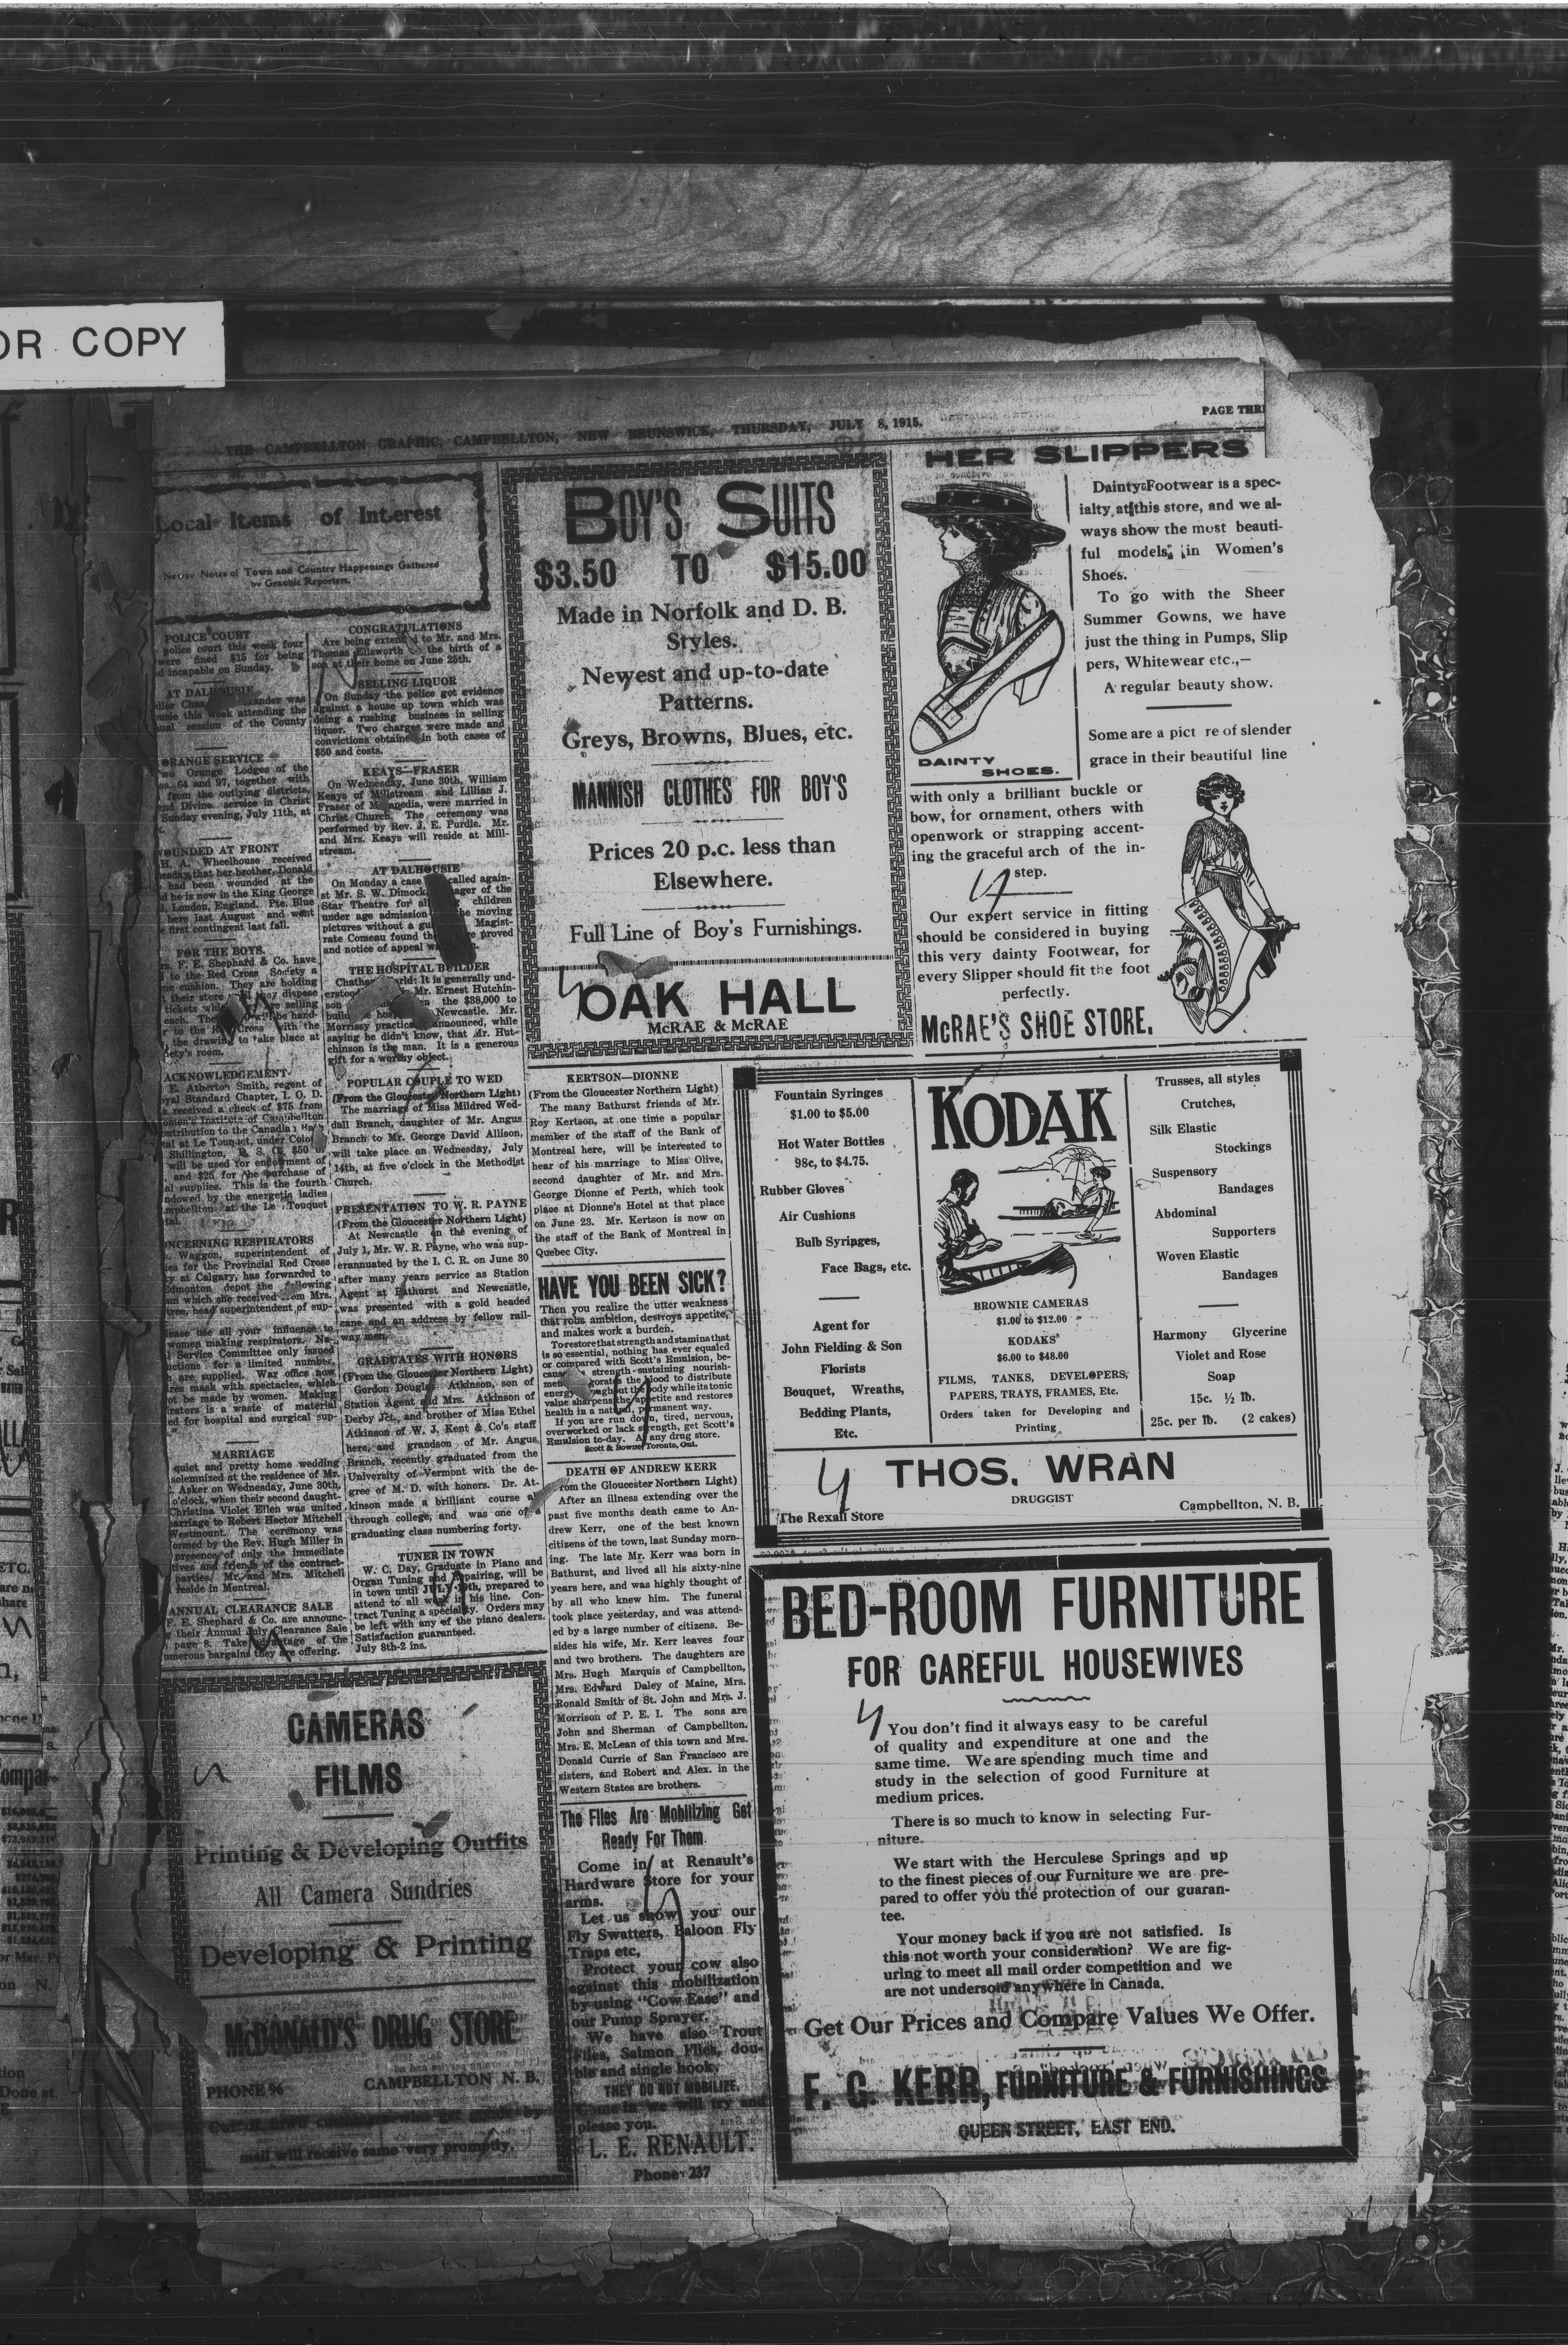 OR COPY
THE CAMPBELLTON GRAPHIC, CAMPBELLTON, NEW BRUNSWICK, THURSDAY, JULY 8, 1915.
PAGE THR
Local Items of Interest
Newsy Notes of Town and Country Happenings Gathered
by Graphic Reporters.
POLICE COURT
police court this week four
were fined $15 for being
incapable on Sunday.
AT DALHOUSIE
this week attending the
session of the County
ORANGE SERVICE
Orange Lodges of the
64 and 97, together with
from the outlying districts,
Divine service in Christ
Sunday evening, July 11th, at
WOUNDED AT FRONT
H. A. Wheelhouse received
that her brother, Donald
had been wounded at the
he is now in the King George
London, England. Pte. Blue
here last August and went
first contingent last fall.
FOR THE BOYS.
F. E. Shephard & Co. have
to the Red Cross Society a
cushion. They are holding
their store
tickets
each.
to the Cross with the
the drawing to take place at
room.
ACKNOWLEDGEMENT
E. Atherton Smith, regent of
Standard Chapter, I. O. D.
received a check of $75 from
Institute of Campbellton
contribution to the Canadian
at Le Touquet, under
Shillington, D. S. O. $50
will be used for endowment of
and $25 for the purchase of
supplies. This is the fourth
endowed by the energetic ladies
at the Le Touquet
CONCERNING RESPIRATORS
Waggon, superintendent of
for the Provincial Red Cross
at Calgary, has forwarded to
Edmonton depot the following
which she received from Mrs.
head superintendent of sup-
use all your influence to
women making respirators. Na-
Service Committee only issued
for a limited number,
are supplied. War office now
mask with spectacles, which
be made by women. Making
is a waste of material
for hospital and surgical sup-
MARRIAGE
quiet and pretty home wedding
solemnized at the residence of Mr.
Asker on Wednesday, June 30th,
o'clock, when their second daught-
Christina Violet Ellen was united
marriage to Robert Hector Mitchell
Westmount. The ceremony was
by the Rev. Hugh Miller in
presence of only the immediate
and friends of the contract-
parties. Mr. and Mrs. Mitchell
reside in Montreal.
ANNUAL CLEARANCE SALE
F. E. Shephard & Co. are announc-
their Annual July Clearance Sale
page 8. Take advantage of the
numerous bargains they are offering.
CONGRATULATIONS
Are being extended to Mr. and Mrs.
Thomas Ellsworth the birth of a
son at their home on June 25th.
SELLING LIQUOR
On Sunday the police got evidence
against a house up town which was
doing a rushing business in selling
liquer. Two charges were made and
convictions obtained in both cases of
$50 and costs.
KEAYS—FRASER
On Wednesday, June 30th, William
Keays of Millstream and Lillian J.
Fraser of were married in
Christ Church. The ceremony was
performed by Rev. J. E. Purdie. Mr.
and Mrs. Keays will reside at Mill-
stream.
AT DALHOUSIE
On Monday a case called again-
st Mr. S. W. Dimock, of the
Star Theatre for children
under age admission moving
pictures without a Magist-
rate Comeau found proved
and notice of appeal
THE HOSPITAL BUILDER
It is generally und-
Mr. Ernest Hutchin-
the $38,000 to
Newcastle. Mr.
Morrissy announced, while
saying he didn't know, that Mr. Hut-
chinson is the man. It is a generous
gift for a worthy object.
POPULAR COUPLE TO WED
(From the Gloucester Northern Light)
The marriage of Miss Mildred Wed-
dall Branch, daughter of Mr. Angus
Branch to Mr. George David Allison,
will take place on Wednesday, July
14th, at five o'clock in the Methodist
Church.
PRESENTATION TO W. R. PAYNE
(From the Gloucester Northern Light)
At Newcastle on the evening of
July 1, Mr. W. R. Payne, who was sup-
erannuated by the I. C. R. on June 30
after many years service as Station
Agent at Bathurst and Newcastle,
was presented with a gold headed
cane and an address by fellow rail-
way men.
GRADUATES WITH HONORS
(From the Gloucester Northern Light)
Gordon Douglas Atkinson, son of
Station Agent and Mrs. Atkinson of
Derby Jct., and brother of Miss Ethel
Atkinson of W. J. Kent & Co's staff
here, and grandson of Mr. Angus
Branch, recently graduated from the
University of Vermont with the de-
gree of M. D. with honors. Dr. At-
kinson made a brilliant course
through college, and was one of a
graduating class numbering forty.
TUNER IN TOWN
W. C. Day, Graduate in Piano and
Organ Tuning and Repairing, will be
in town until JULY prepared to
attend to all work in his line. Con-
tract Tuning a specialty. Orders may
be left with any of the piano dealers.
Satisfaction guaranteed.
July 8th-2 ins.
CAMERAS
FILMS
Printing & Developing Outfits
All Camera Sundries
Developing & Printing
McDONALD'S DRUG STORE
PHONE 96
CAMPBELLTON N. B.
mail will receive same very promptly.
BOY'S SUITS
$3.50 TO $15.00
Made in Norfolk and D. B.
Styles.
Newest and up-to-date
Patterns.
Greys, Browns, Blues, etc.
MANNISH CLOTHES FOR BOY'S
Prices 20 p.c. less than
Elsewhere.
Full Line of Boy's Furnishings.
OAK HALL
McRAE & McRAE
KERTSON—DIONNE
(From the Gloucester Northern Light)
The many Bathurst friends of Mr.
Roy Kertson, at one time a popular
member of the staff of the Bank of
Montreal here, will be interested to
hear of his marriage to Miss Olive,
second daughter of Mr. and Mrs.
George Dionne of Perth, which took
place at Dionne's Hotel at that place
on June 23. Mr. Kertson is now on
the staff of the Bank of Montreal in
Quebec City.
HAVE YOU BEEN SICK?
Then you realize the utter weakness
that robs ambition, destroys appetite,
and makes work a burden.
To restore that strength and stamina that
is so essential, nothing has ever equaled
or compared with Scott's Emulsion, be-
cause strength-sustaining nourish-
blood to distribute
energy throughout the body while its tonic
value sharpens the appetite and restores
health in a natural, permanent way.
If you are run down, tired, nervous,
overworked or lack strength, get Scott's
Emulsion to-day. At any drug store.
Scott & Bowne, Toronto, Ont.
DEATH OF ANDREW KERR
(From the Gloucester Northern Light)
After an illness extending over the
past five months death came to An-
drew Kerr, one of the best known
citizens of the town, last Sunday morn-
ing. The late Mr. Kerr was born in
Bathurst, and lived all his sixty-nine
years here, and was highly thought of
by all who knew him. The funeral
took place yesterday, and was attend-
ed by a large number of citizens. Be-
sides his wife, Mr. Kerr leaves four
and two brothers. The daughters are
Mrs. Hugh Marquis of Campbellton,
Mrs. Edward Daley of Maine, Mrs.
Ronald Smith of St. John and Mrs. J.
Morrison of P. E. I. The sons are
John and Sherman of Campbellton.
Mrs. E. McLean of this town and Mrs.
Donald Currie of San Francisco are
sisters, and Robert and Alex. in the
Western States are brothers.
The Flies Are Mobilizing Get
Ready For Them
Come in at Renault's
Hardware Store for your
arms.
Let us show you our
Fly Swatters, Baloon Fly
Traps etc,
Protect your cow also
against this mobilization
by using "Cow Ease" and
our Pump Sprayer.
We have also Trout
Flies, Salmon Flies, dou-
ble and single hook,
THEY DO NOT MOBILIZE.
Come in we will try and
please you.
L. E. RENAULT.
Phone 237
HER SLIPPERS
Dainty Footwear is a spec-
ialty at this store, and we al-
ways show the most beauti-
ful models, in Women's
Shoes.
To go with the Sheer
Summer Gowns, we have
just the thing in Pumps, Slip
pers, Whitewear etc.,—
A regular beauty show.
Some are a pict re of slender
grace in their beautiful line
DAINTY
SHOES.
with only a brilliant buckle or
bow, for ornament, others with
openwork or strapping accent-
ing the graceful arch of the in-
step.
Our expert service in fitting
should be considered in buying
this very dainty Footwear, for
every Slipper should fit the foot
perfectly.
McRAE'S SHOE STORE.
Fountain Syringes
$1.00 to $5.00
Hot Water Bottles
98c, to $4.75.
Rubber Gloves
Air Cushions
Bulb Syringes,
Face Bags, etc.
Agent for
John Fielding & Son
Florists
Bouquet, Wreaths,
Bedding Plants,
Etc.
KODAK
BROWNIE CAMERAS
$1.00 to $12.00
KODAKS
$6.00 to $48.00
FILMS, TANKS, DEVELOPERS,
PAPERS, TRAYS, FRAMES, Etc.
Orders taken for Developing and
Printing
Trusses, all styles
Crutches,
Silk Elastic
Stockings
Suspensory
Bandages
Abdominal
Supporters
Woven Elastic
Bandages
Harmony Glycerine
Violet and Rose
Soap
15c. ½ lb.
25c. per lb. (2 cakes)
THOS. WRAN
DRUGGIST
The Rexall Store
Campbellton, N. B.
BED-ROOM FURNITURE
FOR CAREFUL HOUSEWIVES
You don't find it always easy to be careful
of quality and expenditure at one and the
same time. We are spending much time and
study in the selection of good Furniture at
medium prices.
There is so much to know in selecting Fur-
niture.
We start with the Herculese Springs and up
to the finest pieces of our Furniture we are pre-
pared to offer you the protection of our guaran-
tee.
Your money back if you are not satisfied. Is
this not worth your consideration? We are fig-
uring to meet all mail order competition and we
are not undersold anywhere in Canada.
Get Our Prices and Compare Values We Offer.
F. G. KERR, FURNITURE & FURNISHINGS
QUEEN STREET, EAST END.